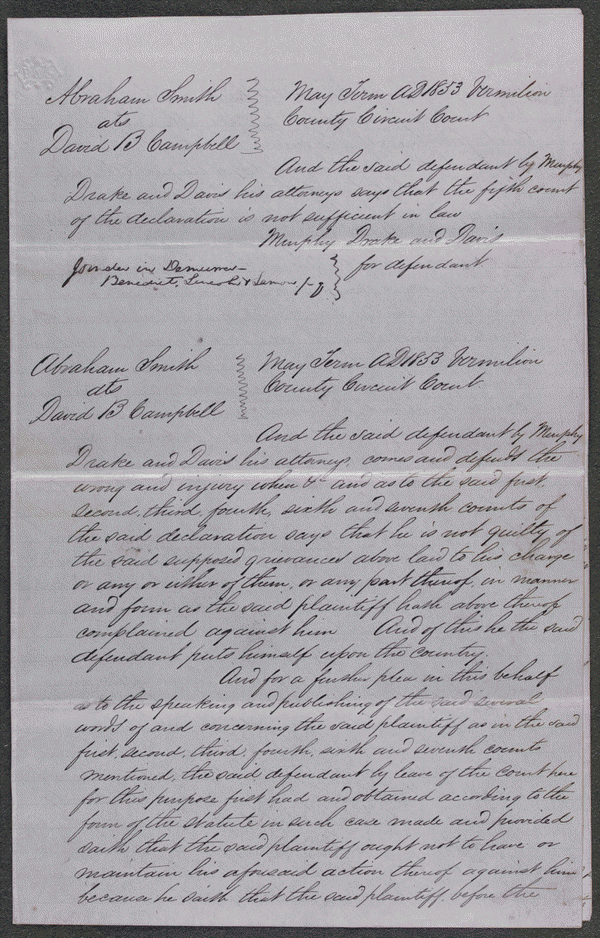 Abraham Smith
ats
David B Campbell
May Term AD 1853 Vermilion
County Circuit Court
And the said defendant by Murphy
Drake and Davis his attorneys says that the fifth count
of the declaration is not sufficient in law
Murphy Drake and Davis
for defendant
Joinder in Demurrer
Benedict, Lincoln & Lamon p q
Abraham Smith
ats
David B Campbell
May Term AD 1853 Vermilion
County Circuit Court
And the said defendant by Murphy
Drake and Davis his attorneys comes and defends the
wrong and injury when &c and as to the said first,
second, third, fourth, sixth and seventh counts of
the said declaration says that he is not guilty of
the said supposed grievances above laid to his charge
or any or either of them, or any part thereof, in manner
and form as the said plaintiff hath above thereof
complained against him And of this he the said
defendant puts himself upon the country.
And for a further plea in this behalf
as to the speaking and publishing of the said several
words of and concerning the said plaintiff as in the said
first, second, third, fourth, sixth and seventh counts
mentioned, the said defendant by leave of the court here
for this purpose first had and obtained according to the
form of the statute in such case made and provided
saith that the said plaintiff ought not to have or
maintain his aforesaid action thereof against him
because he saith that the said plaintiff, before the